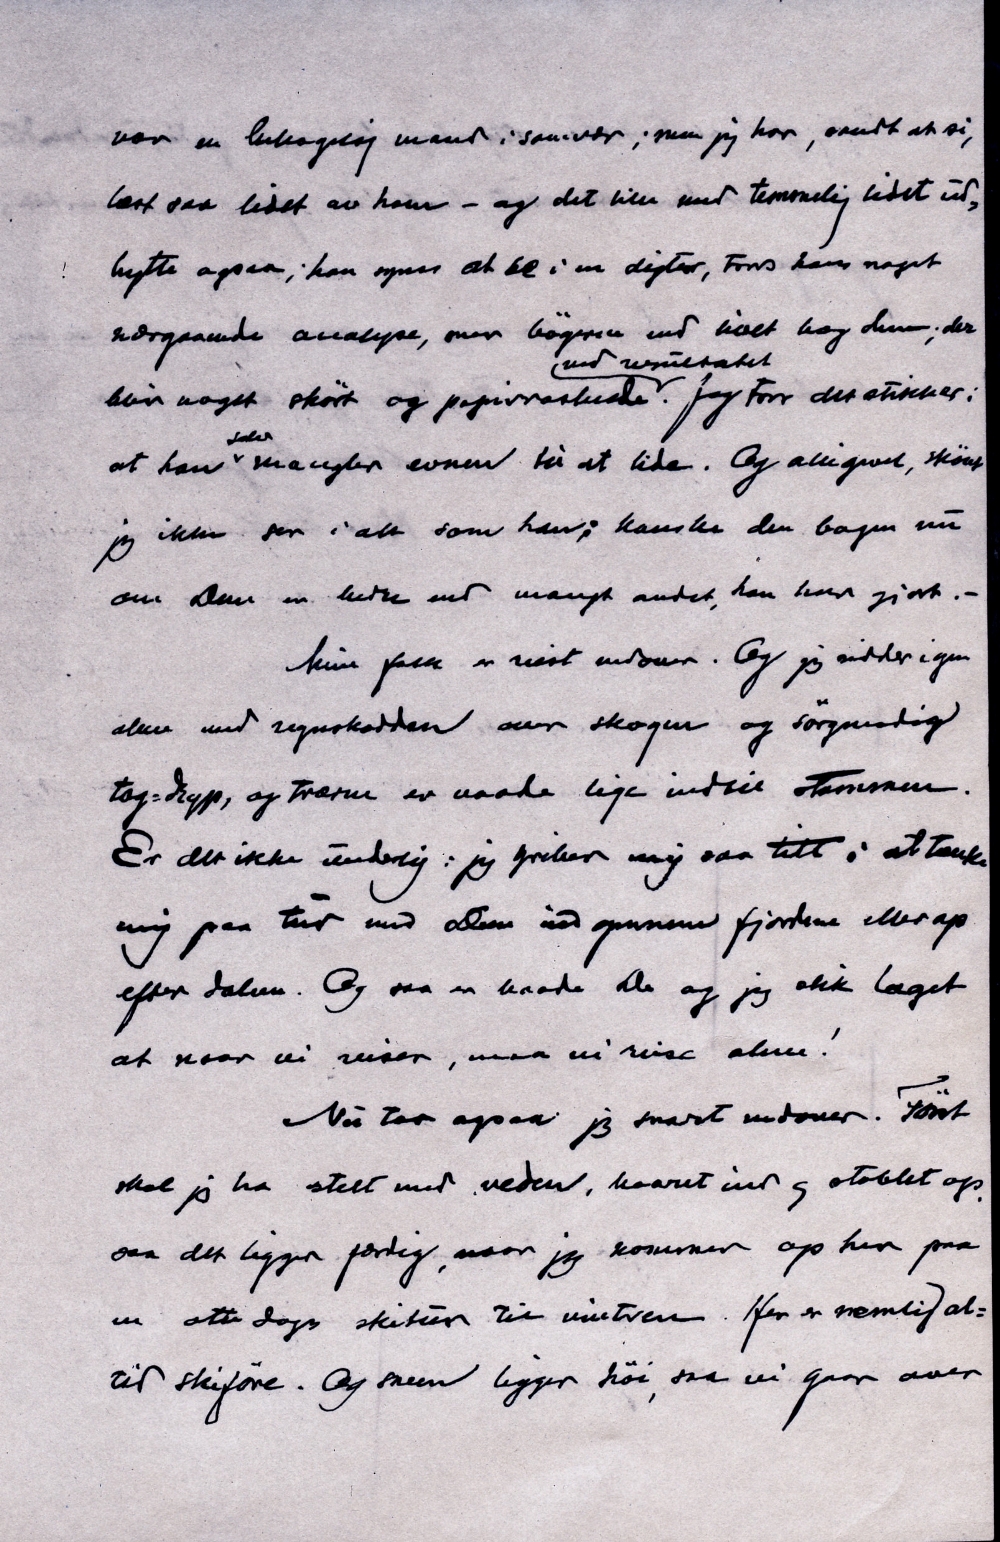 var en behagelig mand i samvær; men jeg har, sandt at si,
læst saa lidet av ham – og det lille med temmelig lidet ud=
bytte ogsaa; han synes at se i en digter, tross hans noget
nærgaaende analyse, mer bøgerne end livet bag dem; der
(ved resultatet
blir noget skört og papirraslende. Jeg tror det stikker i
selv
at han mangler evnen til at lide. Og alligevel, skönt
jeg ikke ser i alt som han; kanske den bogen nu
om Dem er bedre end mangt andet, han har gjort. –
Mine folk er reist nedover. Og jeg sidder igen
alene med regnskodden over skogen og sörgmodig
tag=dryp, og trærne er vaade lige indtil stammen.
Er det ikke underlig: jeg griber mig saa titt i at tænke
mig paa tur med Dem ind gennem fjordene eller op
efter dalene. Og saa er baade De og jeg slik laget
at naar vi reiser, maa vi reise alene!
Nu tar ogsaa jeg snart nedover. Först
skal jeg ha stelt med veden, baaret ind og stablet op,
saa det ligger færdig, naar jeg kommer op her paa
en otte dags skitur til vinteren. Her er nemlig al=
tid skiföre. Og sneen ligger höi, saa vi gaar over